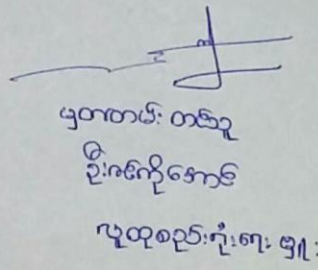 မှတ်တမ်း တင်သူ
ဦးဇင်ကိုအောင်
လူထုစည်းရုံးရေး မှူး